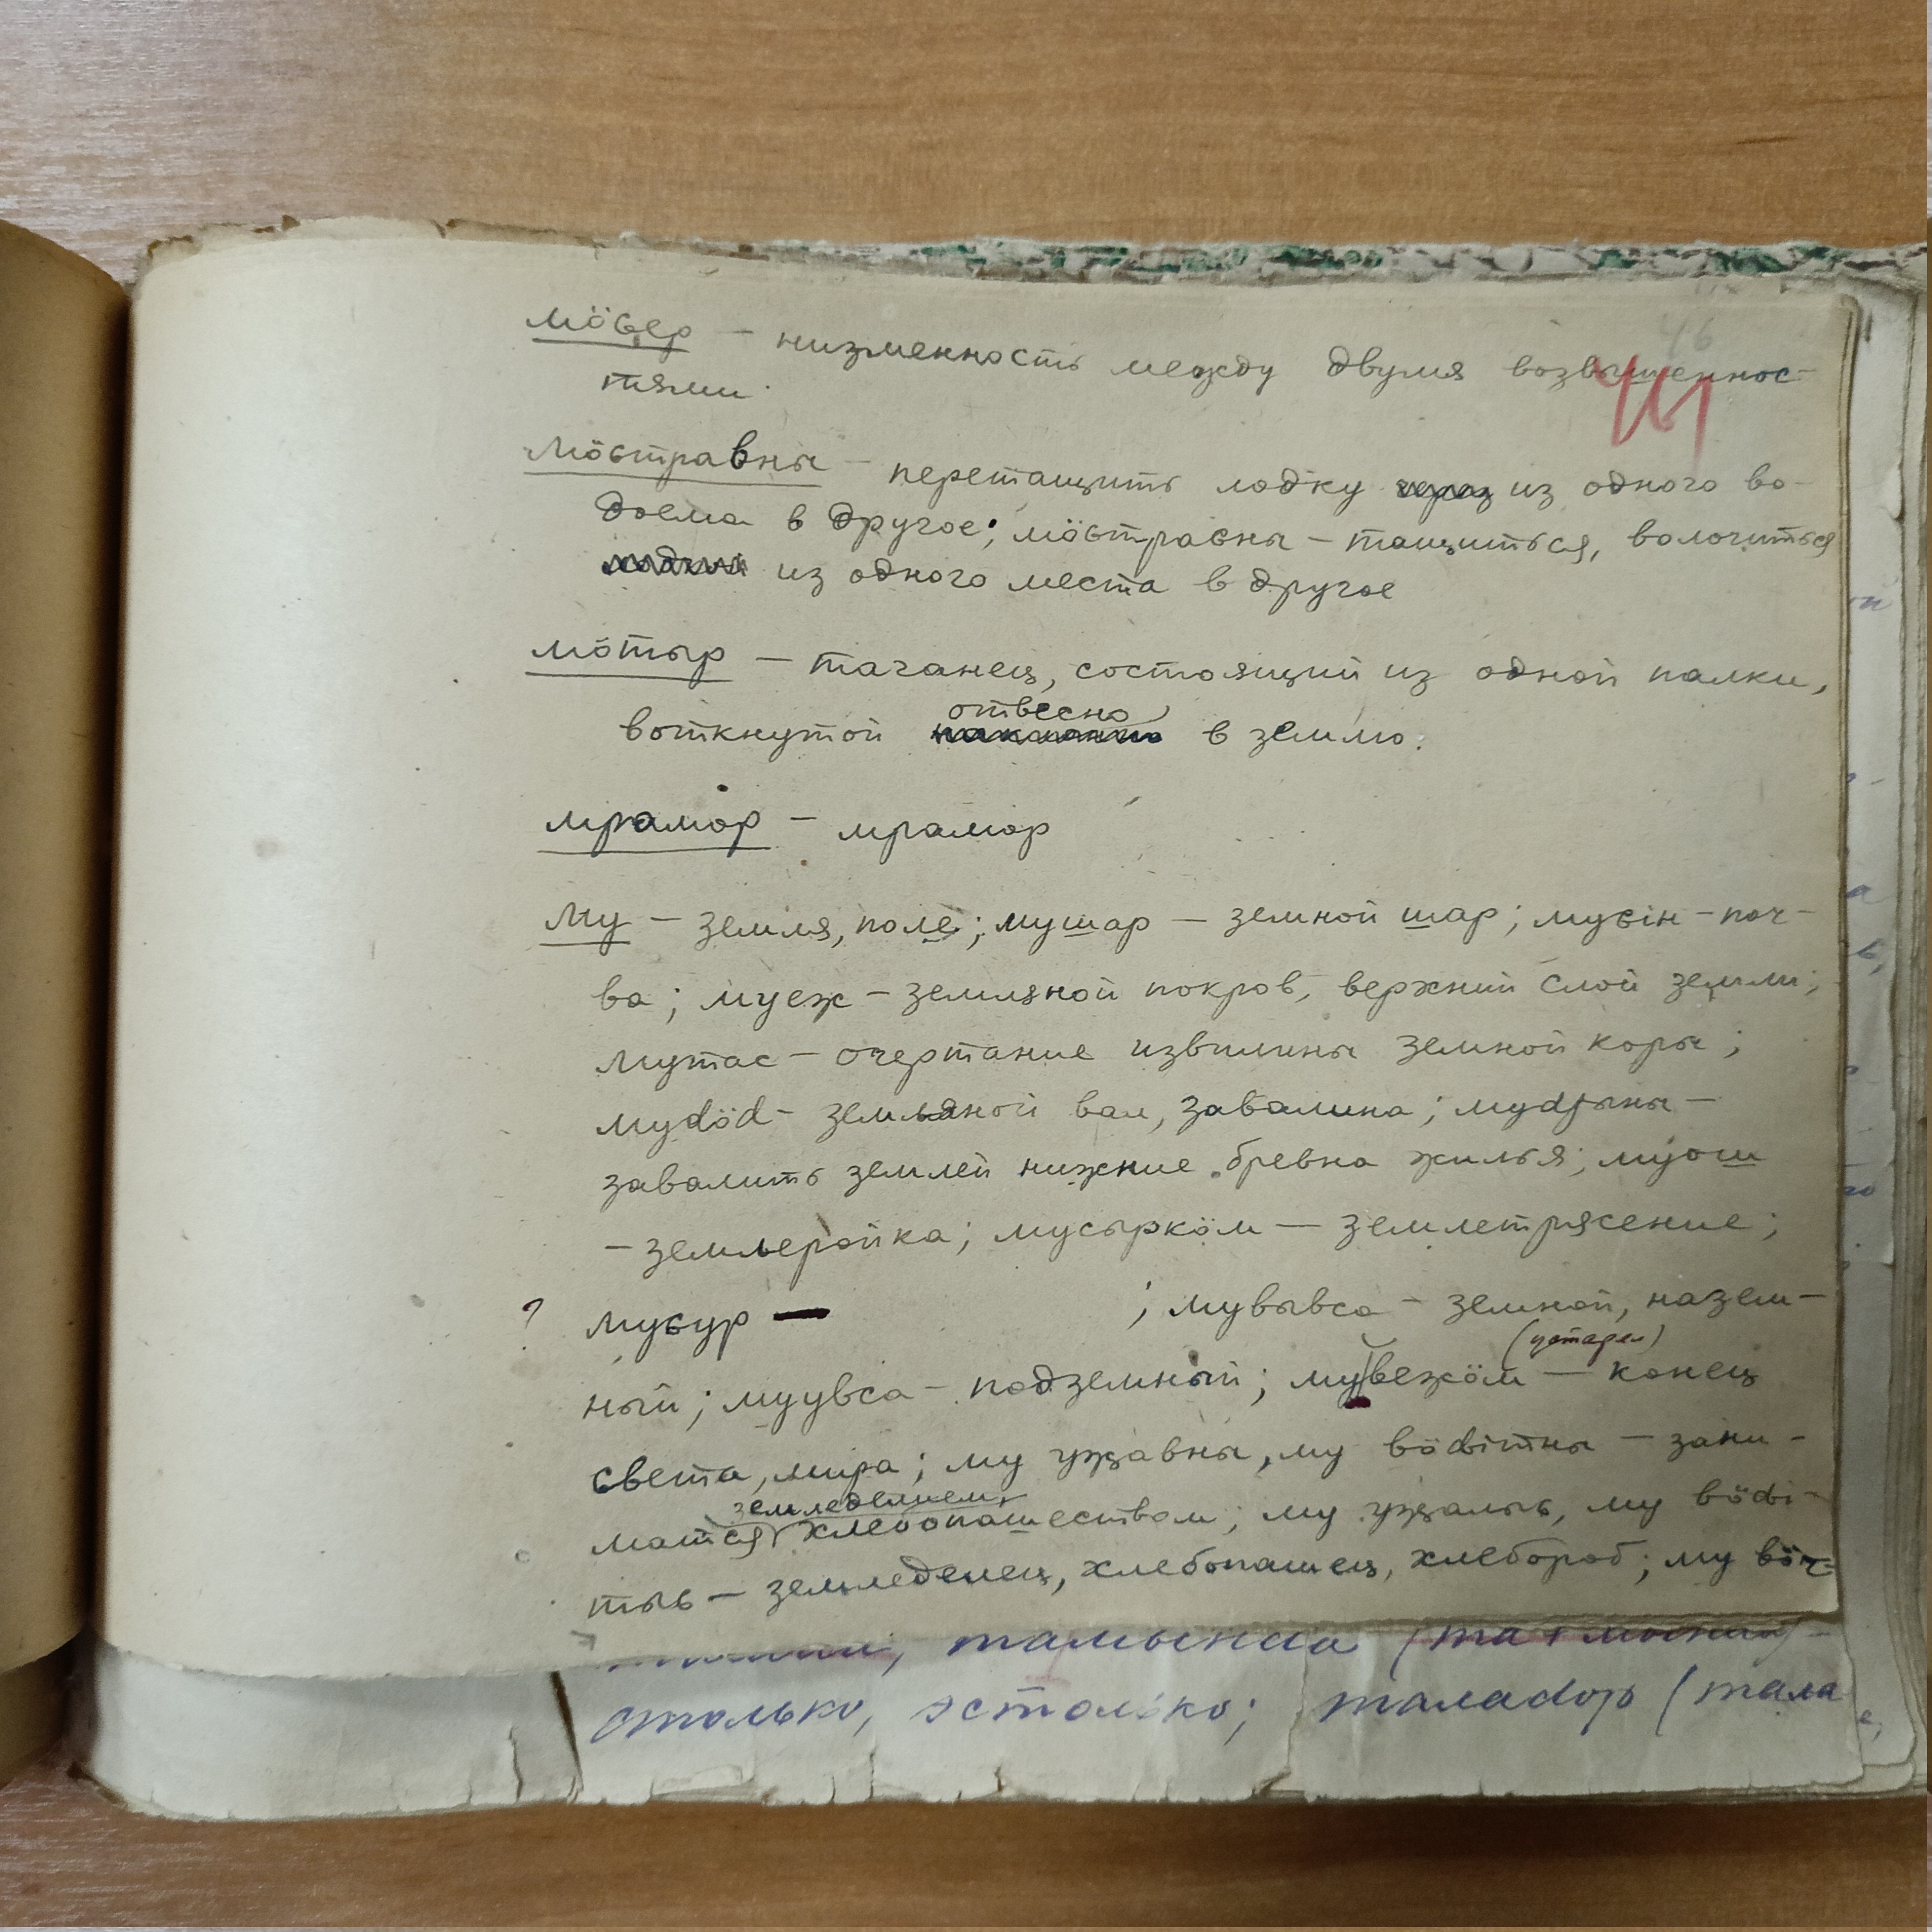 46
461
мöвер — низменность между двумя возвышеннос-
тями.
мöстравны — перетащить лодку через из одного во-
доема в другое; мöстрасны — тащиться, волочиться
из одного места в другое
мöтыр — таганец, состоящий из одной палки,
отвесно
воткнутой наклонно в землю.
мрамор — мрамор
Му — земля, поле; мушар — земной шар; мусiн — поч-
ва; муеж — земляной покров, верхний слой земли;
мутас — очертание извилины земной коры;
муdöd — земляной вал, завалина; муdjыны —
завалить землей нижние бревна жилья; муош
— землеройка; мусыркöм — землетрясение;
? мусур — ; мувывса — земной, назем-
(устарел)
ный; муувса — подземный; мувежöм — конец
света, мира; му уџавны, му вödiтны — зани-
земледелием,
маться хлебопашеством; му уџалыс, му вödi-
тыс — земледелец, хлебопашец, хлебороб; му вöч-
тамында (та+мында) -
столько, эстолько; таладор (тала